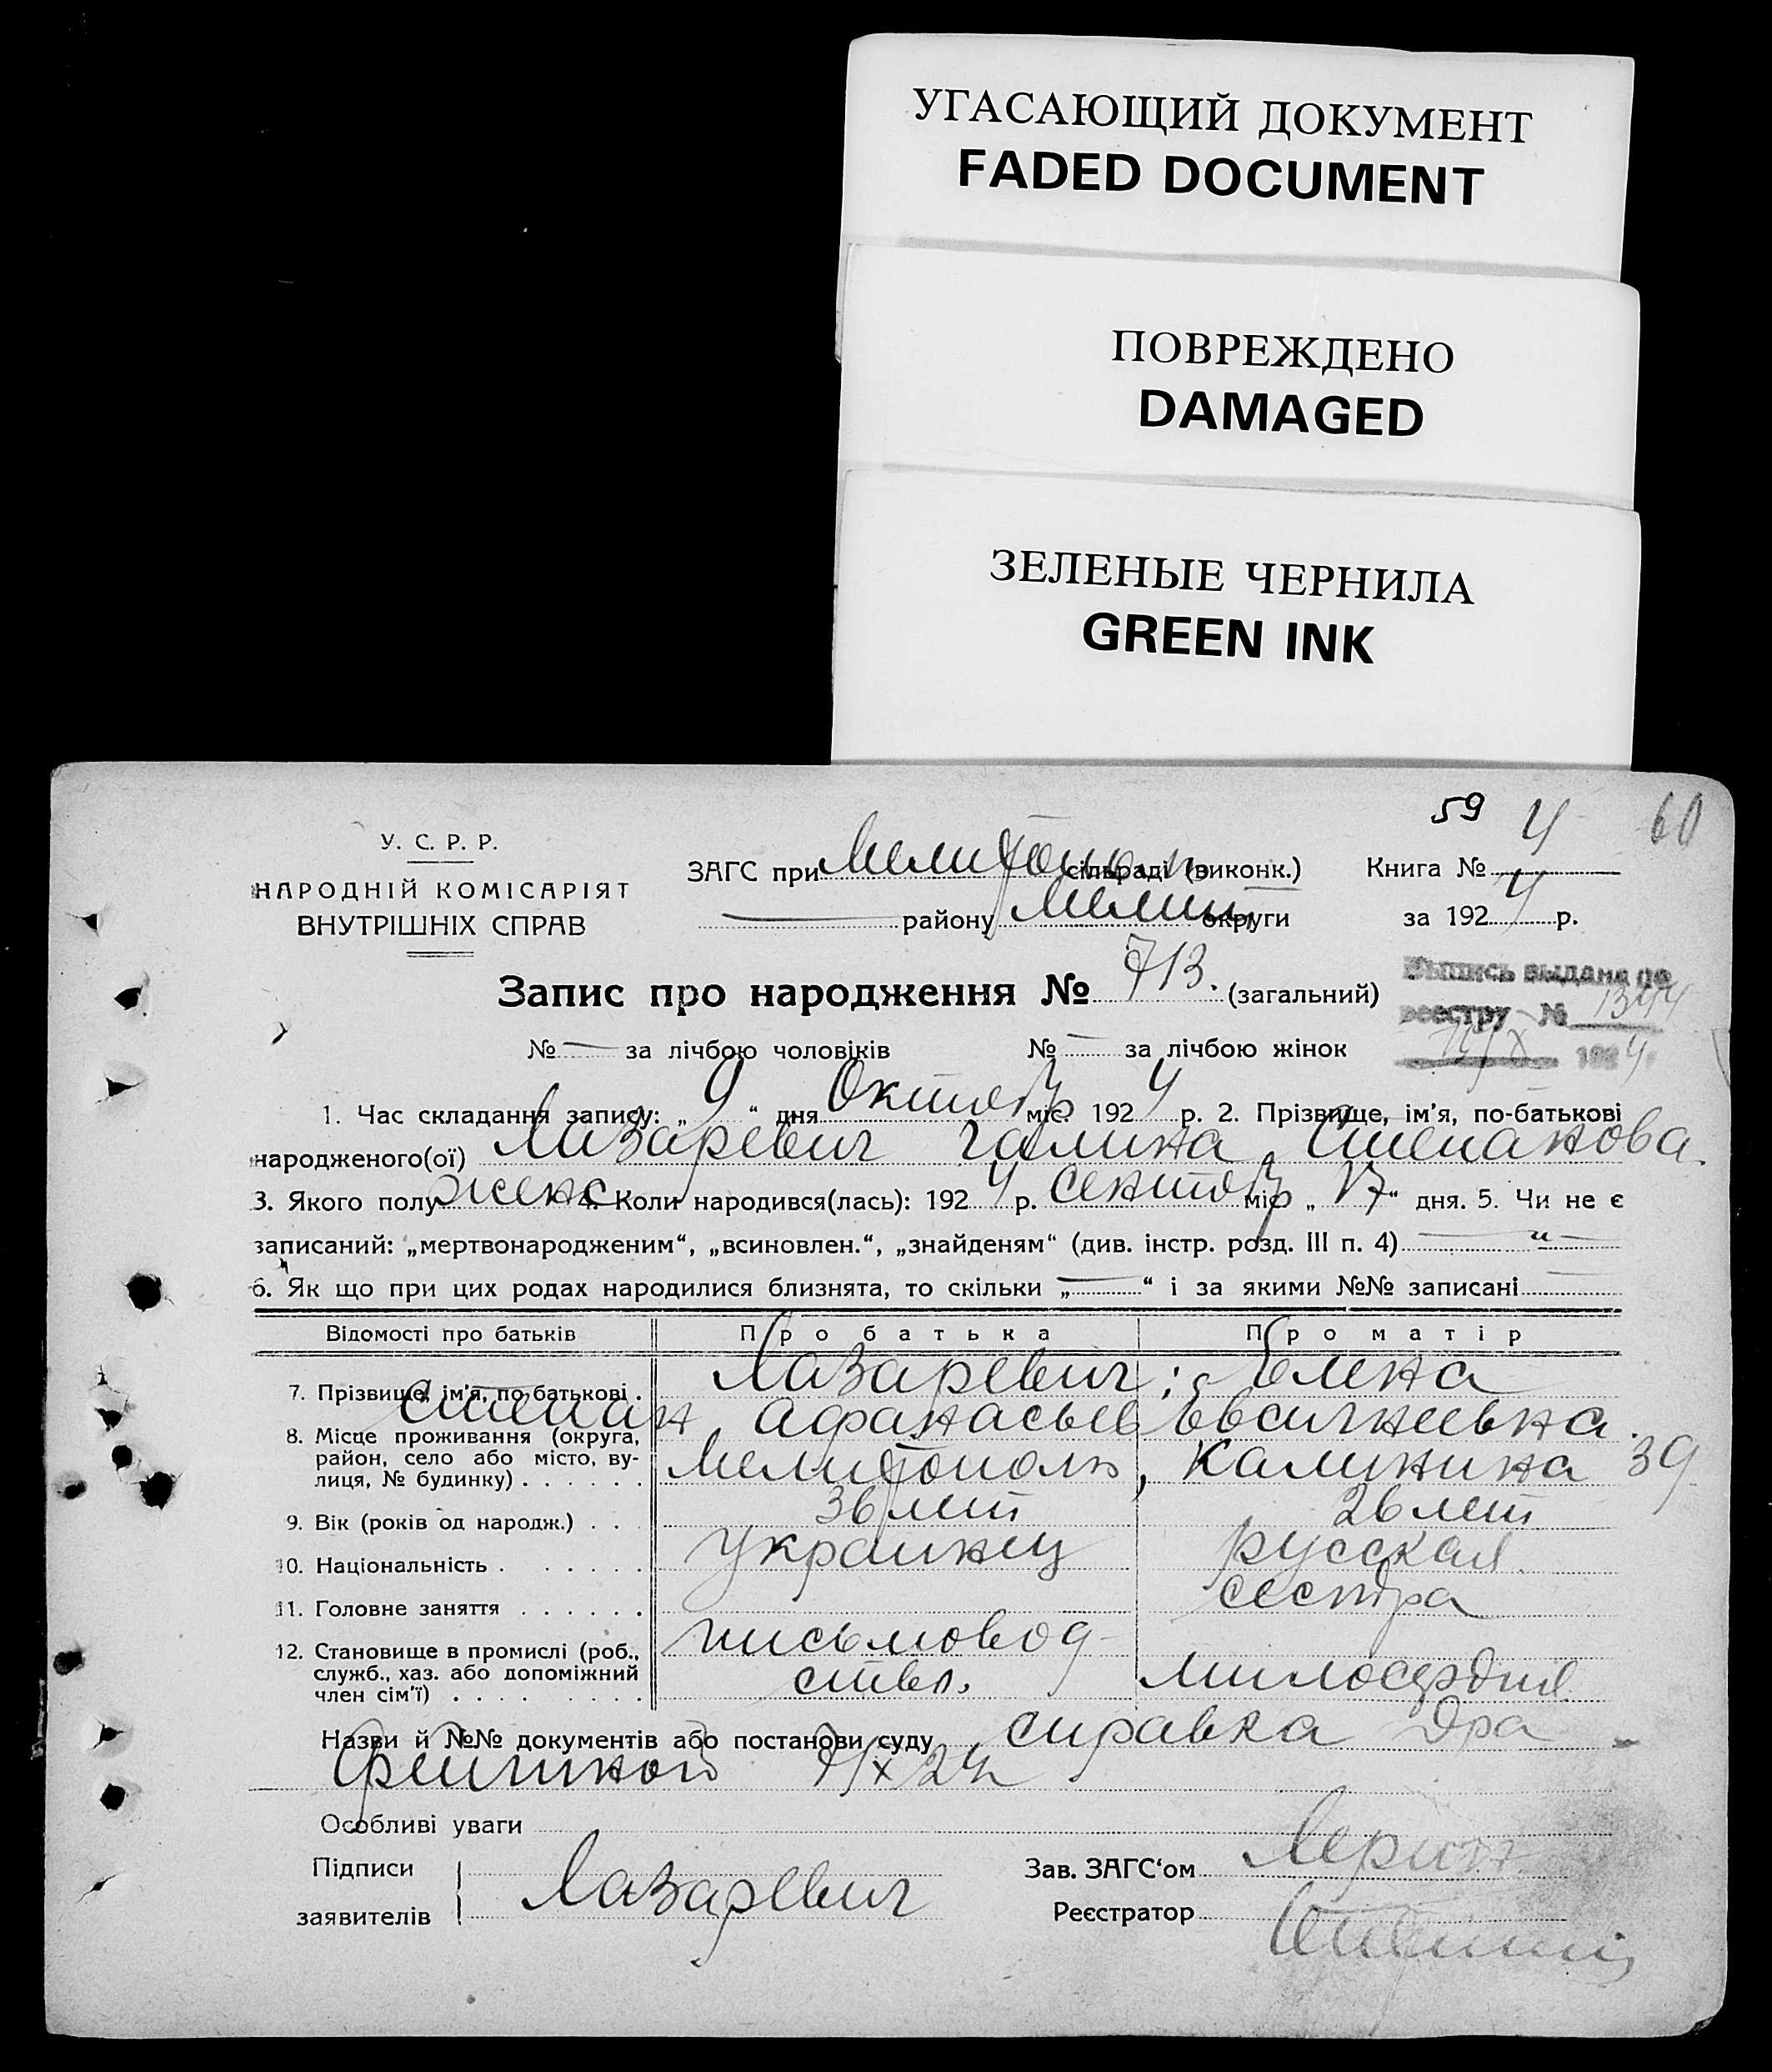 УГАСАЮЩИЙ ДОКУМЕНТ
FADED DOCUMENT
ПОВРЕЖДЕНО
DAMAGED
ЗЕЛЕНЫЕ ЧЕРНИЛА
GREEN INK
59 4 60
У. С. Р. Р.
НАРОДНІЙ КОМІСАРІЯТ
ВНУТРІШНІХ СПРАВ
ЗАГС при Мелитополь сільраді (виконк.) Книга № 4
— району Мелит округи за 1924 р.
Запис про народження № 713. (загальний)
Выпись выдана по
реестру № 1344
1924
№ — за лічбою чоловіків № — за лічбою жінок
1. Час складання запису: „ 9 “ дня Октября міс. 1924 р. 2. Прізвище, ім’я, по-батькові
народженого(ої) Лазаревич Галина Степанова.
3. Якого полу женс 4. Коли народився(лась): 1924 р. Сентябр міс „ 17 “ дня. 5. Чи не є
записаний: „мертвонародженим“, „всиновлен.“, „знайденям“ (див. інстр. розд. III п. 4) — „ —
6. Як що при цих родах народилися близнята, то скільки „ — “ і за якими №№ записані —
Відомості про батьків Про батька Про матір
7. Прізвище, ім’я, по-батькові . Лазаревич; Елена
Степан Афанасьев Евсигнеевна.
8. Місце проживання (округа,
район, село або місто, ву-
лиця, № будинку) . . . . . . Мелитополь, Калинина 39
9. Вік (років од народж.) . . . 36 лет 26 лет
10. Національність . . . . . . украинец русская
11. Головне заняття . . . . . . сестра
12. Становище в промислі (роб.,
служб., хаз. або допоміжний
член сім’ї) . . . . . . . письмовод-
ствл. милосердия
Назви й №№ документів або постанови суду справка Дра
7/X 24
Особливі уваги
Підписи
заявителів Лазаревич
Зав. ЗАГС‘ом
Реєстратор